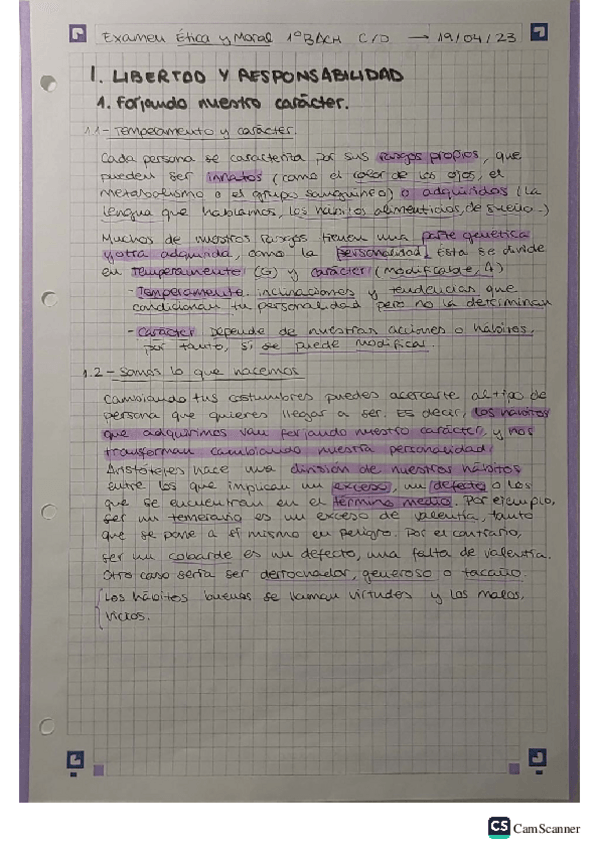 Examen Ética y Moral 1ºBACH C/D → 19/04/23
1. LIBERTAD Y RESPONSABILIDAD
1. Forjando nuestro carácter.
1.1- Temperamento y carácter.
Cada persona se caracteriza por sus rasgos propios, que
pueden ser innatos (como el color de los ojos, el
metabolismo o el grupo sanguíneo) o adquiridos (la
lengua que hablamos, los hábitos alimenticios, de sueño.)
Muchos de nuestros rasgos tienen una parte genética
y otra adquirida, como la personalidad. Esta se divide
en Temperamento (G) y carácter (modificable, A)
- Temperamento. inclinaciones y tendencias que
condicionan tu personalidad pero no la determinan
- Carácter Depende de nuestras acciones o hábitos,
por tanto, sí se puede modificar.
1.2- Somos lo que hacemos
Cambiando tus costumbres puedes acercarte al tipo de
persona que quieres llegar a ser. Es decir, los hábitos
que adquirimos van forjando nuestro carácter, y nos
transforman cambiando nuestra personalidad.
Aristóteles hace una división de nuestros hábitos
entre los que implican un exceso, un defecto o los
que se encuentran en el término medio. Por ejemplo,
ser un temerario es un exceso de valentía, tanto
que se pone a sí mismo en peligro. Por el contrario,
ser un cobarde es un defecto, una falta de valentía.
Otro caso sería ser derrochador, generoso o tacaño.
Los hábitos buenos se llaman virtudes y los malos,
vicios.
CS CamScanner